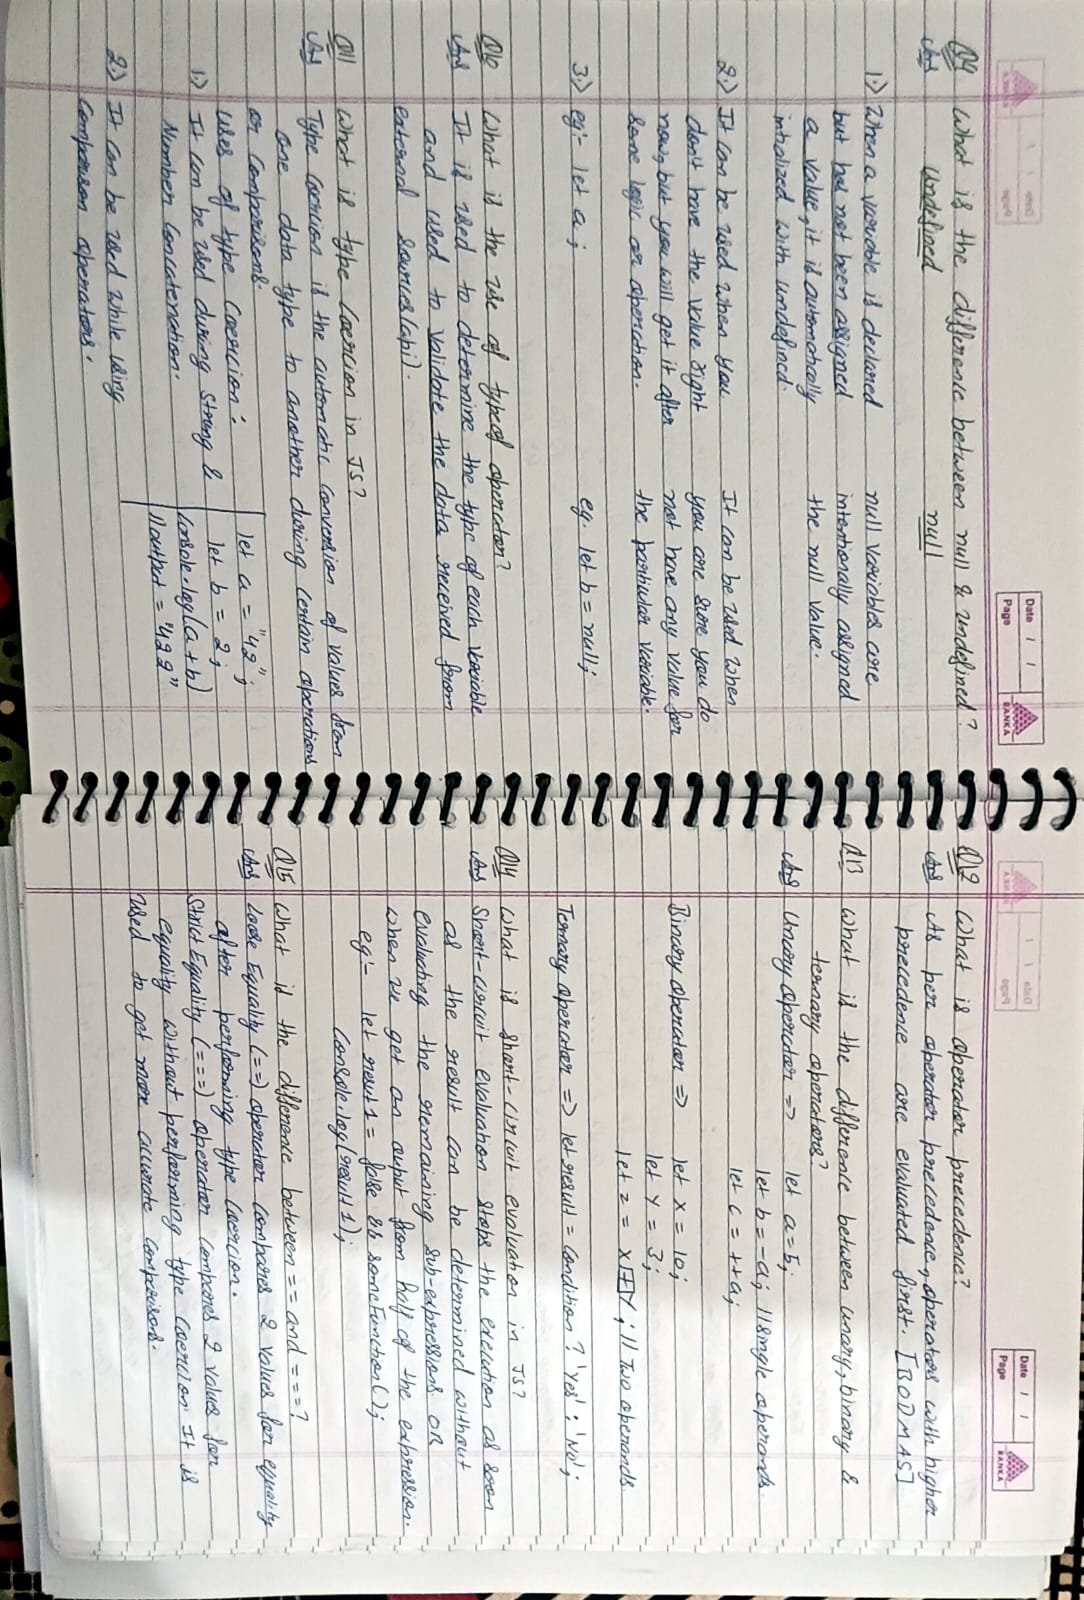 Date / /
Page
RANKA
Q9 What is the difference between null & undefined?
Ans undefined null
1.) When a variable is declared null variables are
but has not been assigned intentionally assigned
a value, it is automatically the null value.
initialized with undefined.
2.) It can be used when you It can be used when
don't have the value right you are sure you do
now, but you will get it after not have any value for
some logic or operation. the particular variable.
3.) eg:- let a; eg. let b = null;
Q10 What is the use of typeof operator?
Ans It is used to determine the type of each variable
and used to validate the data received from
external sources(api).
Q11 What is type Coercion in JS?
Ans Type Coercion is the automatic conversion of values from
one data type to another during certain operations
or comparisons.
Uses of type Coercion:
1.) It can be used during String &
Number Concatenation.
2.) It can be used while using
Comparison operators.
let a = "42";
let b = 2;
Console.log(a+b)
//output = "422"
Date / /
Page
RANKA
Q12 What is operator precedence?
Ans As per operator precedence, operators with higher
precedence are evaluated first. [BODMAS]
Q13 What is the difference between unary, binary &
ternary operators?
Ans Unary operator => let a=5;
let b=-a; //single operands
let c=++a;
Binary operator => let x=10;
let y=3;
let z = x+y; // Two operands
Ternary operator => let result = condition? 'Yes' : 'No';
Q14 What is Short-circuit evaluation in JS?
Ans Short-circuit evaluation stops the execution as soon
as the result can be determined without
evaluating the remaining sub-expressions OR
when we get an output from half of the expression.
eg:- let result1 = false && someFunction();
Console.log(result1);
Q15 What is the difference between == and ===?
Ans Loose Equality(==) operator compares 2 values for equality
after performing type Coercion.
Strict Equality(===) operator compares 2 values for
equality without performing type Coercion. It is
used to get more accurate comparisons.